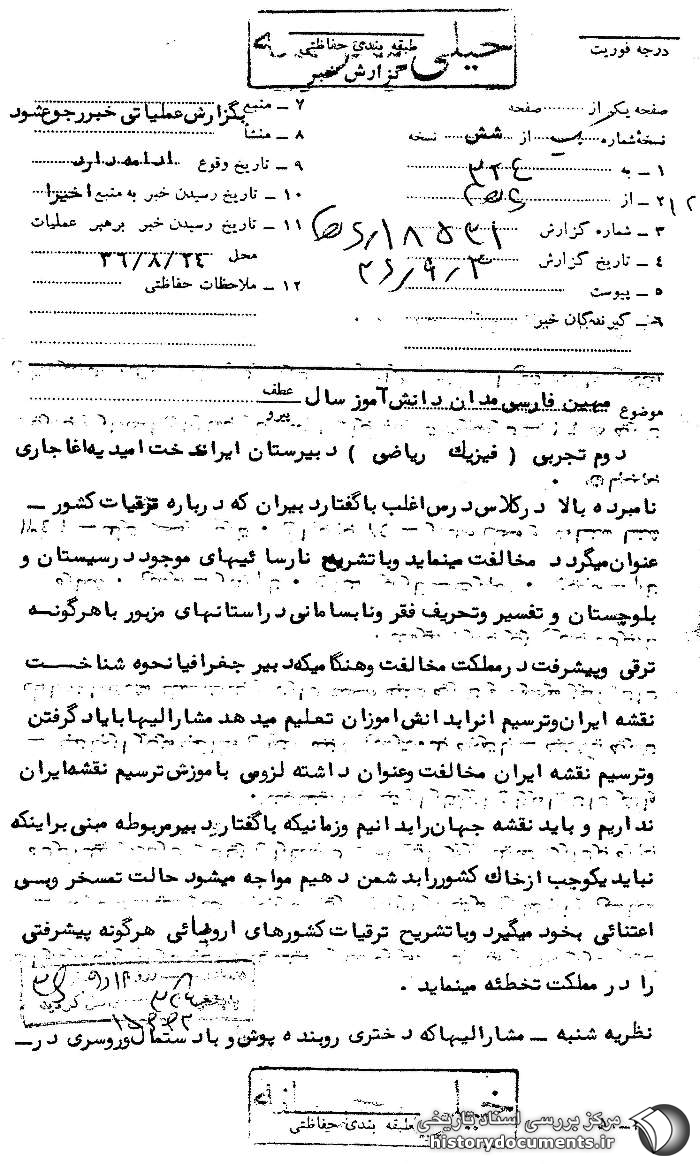 درجه فوریت
خیلی محرمانه
طبقه بندی حفاظتی
گزارش خبر
صفحه یک از صفحه
نسخه شماره از شش نسخه
۱ ـ به ۳۲۴
۲ ـ از
۳ ـ شماره گزارش
۴ ـ تاریخ گزارش ۳۶/۹/۳
۵ ـ پیوست
۶ ـ گیرندگان خبر
۷ ـ منبع بگزارش عملیاتی خبر رجوع شود
۸ ـ منشأ
۹ ـ تاریخ وقوع ادامه دارد
۱۰ ـ تاریخ رسیدن خبر به منبع اخیرا
۱۱ ـ تاریخ رسیدن خبر برهبر عملیات
محل ۳۶/۸/۲۴
۱۲ ـ ملاحظات حفاظتی
موضوع مهین فارسی مدان دانش آموز سال
عطف
پیرو
دوم تجربی ( فیزیک ریاضی ) دبیرستان ایراندخت امیدیه اغاجاری
نامبرده بالا در کلاس درس اغلب با گفتار دبیران که درباره ترقیات کشور ـ
عنوان میگردد مخالفت مینماید و با تشریح نارسائیهای موجود در سیستان و
بلوچستان و تفسیر و تحریف فقر و نابسامانی در استانهای مزبور با هرگونه
ترقی و پیشرفت در مملکت مخالفت و هنگامیکه دبیر جغرافیا نحوه شناخت
نقشه ایران و ترسیم انرا بدانش اموزان تعلیم میدهد مشارالیها با یاد گرفتن
و ترسیم نقشه ایران مخالفت و عنوان داشته لزومی باموزش ترسیم نقشه ایران
نداریم و باید نقشه جهان را بدانیم و زمانیکه با گفتار دبیر مربوطه مبنی بر اینکه
نباید یکوجب از خاک کشور را بدشمن دهیم مواجه میشود حالت تمسخر و بی
اعتنائی بخود میگیرد و با تشریح ترقیات کشورهای اروپائی هرگونه پیشرفتی
را در مملکت تخطئه مینماید .
نظریه شنبه ـ مشارالیها که دختری روبنده پوش و با دستمال و روسری در ـ
طبقه بندی حفاظتی
مرکز بررسی اسناد تاریخی
historydocuments.ir